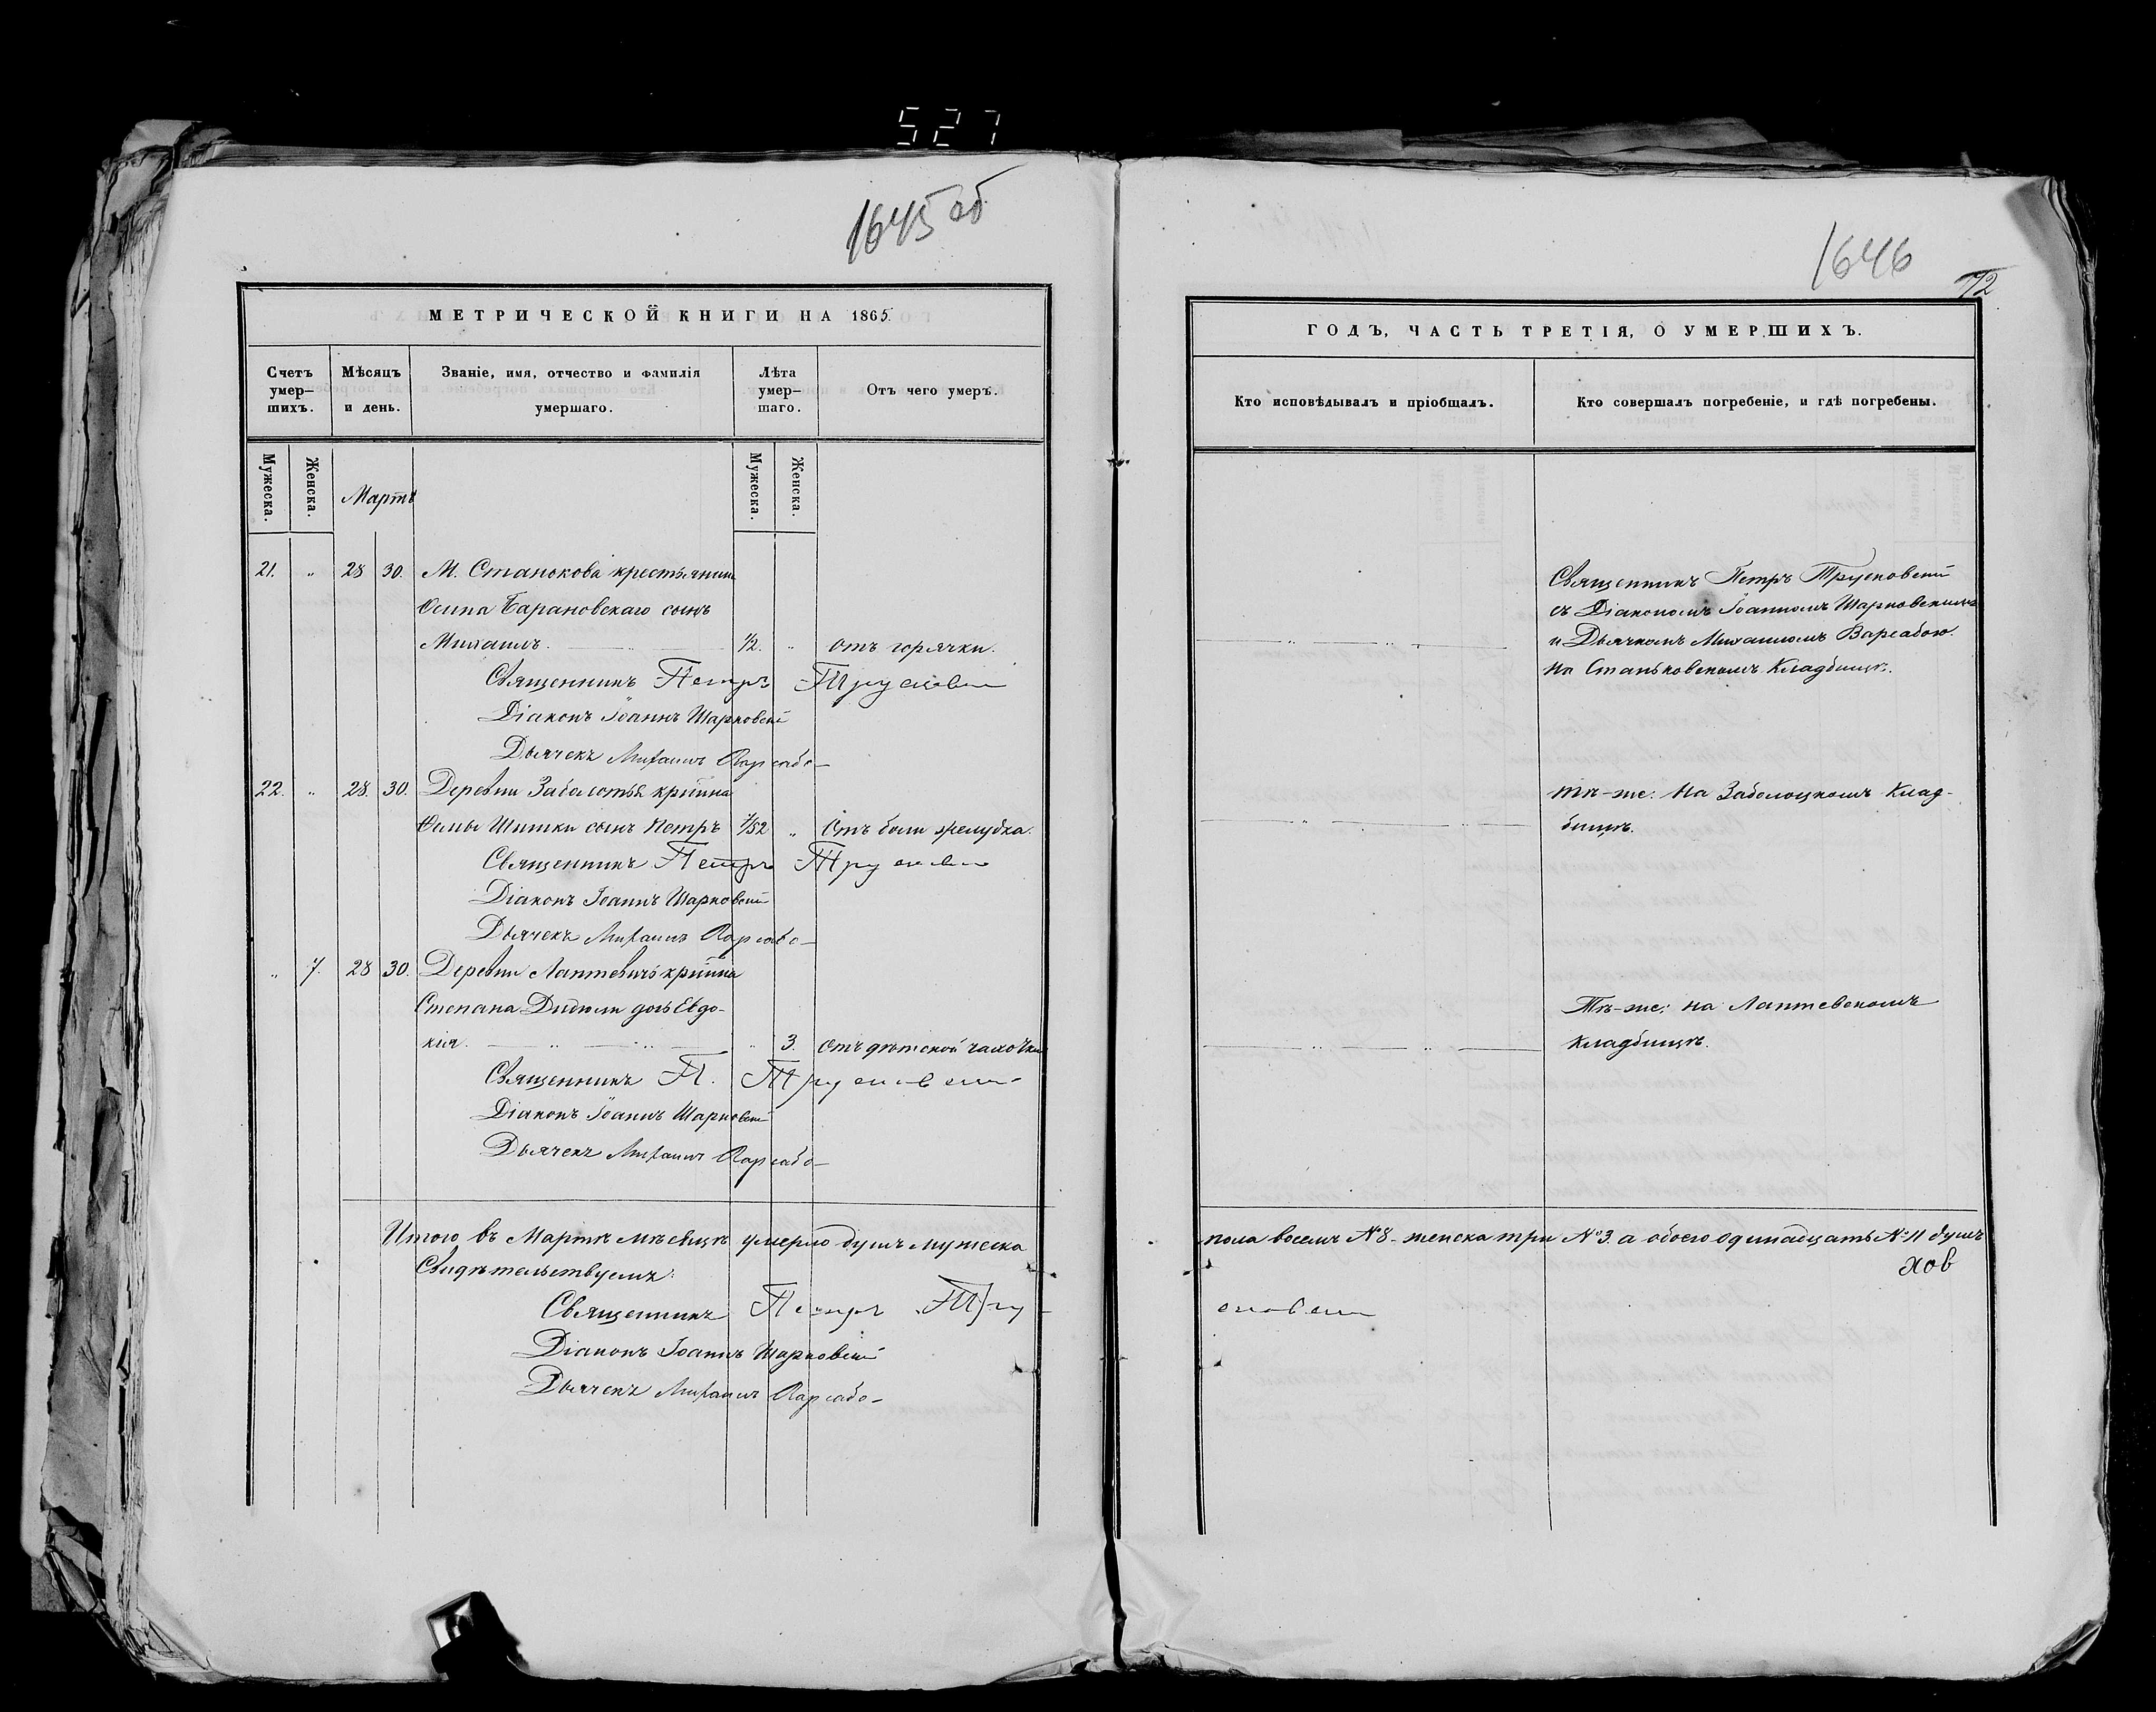 527
1645 об
МЕТРИЧЕСКОЙ КНИГИ НА 1865.
Счетъ умер—шихъ.
Мѣсяцъ и день.
Званіе, имя, отчество и фамилія умершаго.
Лѣта умер—шаго.
Отъ чего умеръ.
Мужеска.
Женска.
Мартъ
Мужеска.
Женска.
21. " 28 30. М. Станокова крестьянина
Осипа Барановскаго сынъ
Михаилъ. 1/2. " отъ горячки.
Священникъ Петръ Трусковскій
Діаконъ Іоаннъ Шарковскій
Дьячекъ Михаилъ Варсабо
22. " 28. 30. Деревни Заболотья кр҃тнина
Шишки сынъ Петръ 7/52 " Отъ боли желудка.
Священникъ Петръ Трусковскій
Діаконъ Іоаннъ Шарковскій
Дьячекъ Михаилъ Варсабо
" 7. 28 30. Деревни Лаптевичъ
Степана Дидюли дочь Евдо-
кія. " 3. отъ дѣтской чахотки
Священникъ П. Трусковскій
Діаконъ Іоаннъ Шарковскій
Дьячекъ Михаилъ Варсабо
Итого въ Мартѣ мѣсяцѣ умерло душъ мужеска
Свидѣтельствуемъ:
Священникъ Петръ Тру
Діаконъ Іоаннъ Шарковскій
Дьячекъ Михаилъ Варсабо
1646
72
ГОДЪ, ЧАСТЬ ТРЕТІЯ, О УМЕРШИХЪ.
Кто исповѣдывалъ и пріобщалъ.
Кто совершалъ погребеніе, и гдѣ погребены.
Священникъ Петръ Трусковскій
съ Діакономъ Іоанномъ Шарковскимъ
и Дьячкомъ Михаиломъ Варсабою.
на Станьковскомъ Кладбищѣ.
тѣ-же: на Заболоцкомъ Клад-
бищѣ.
Тѣ-же: на Лаптевскомъ
Кладбищѣ.
пола восемь №8- женска три №3. а обоего одинадцать №11 душъ
сковскій